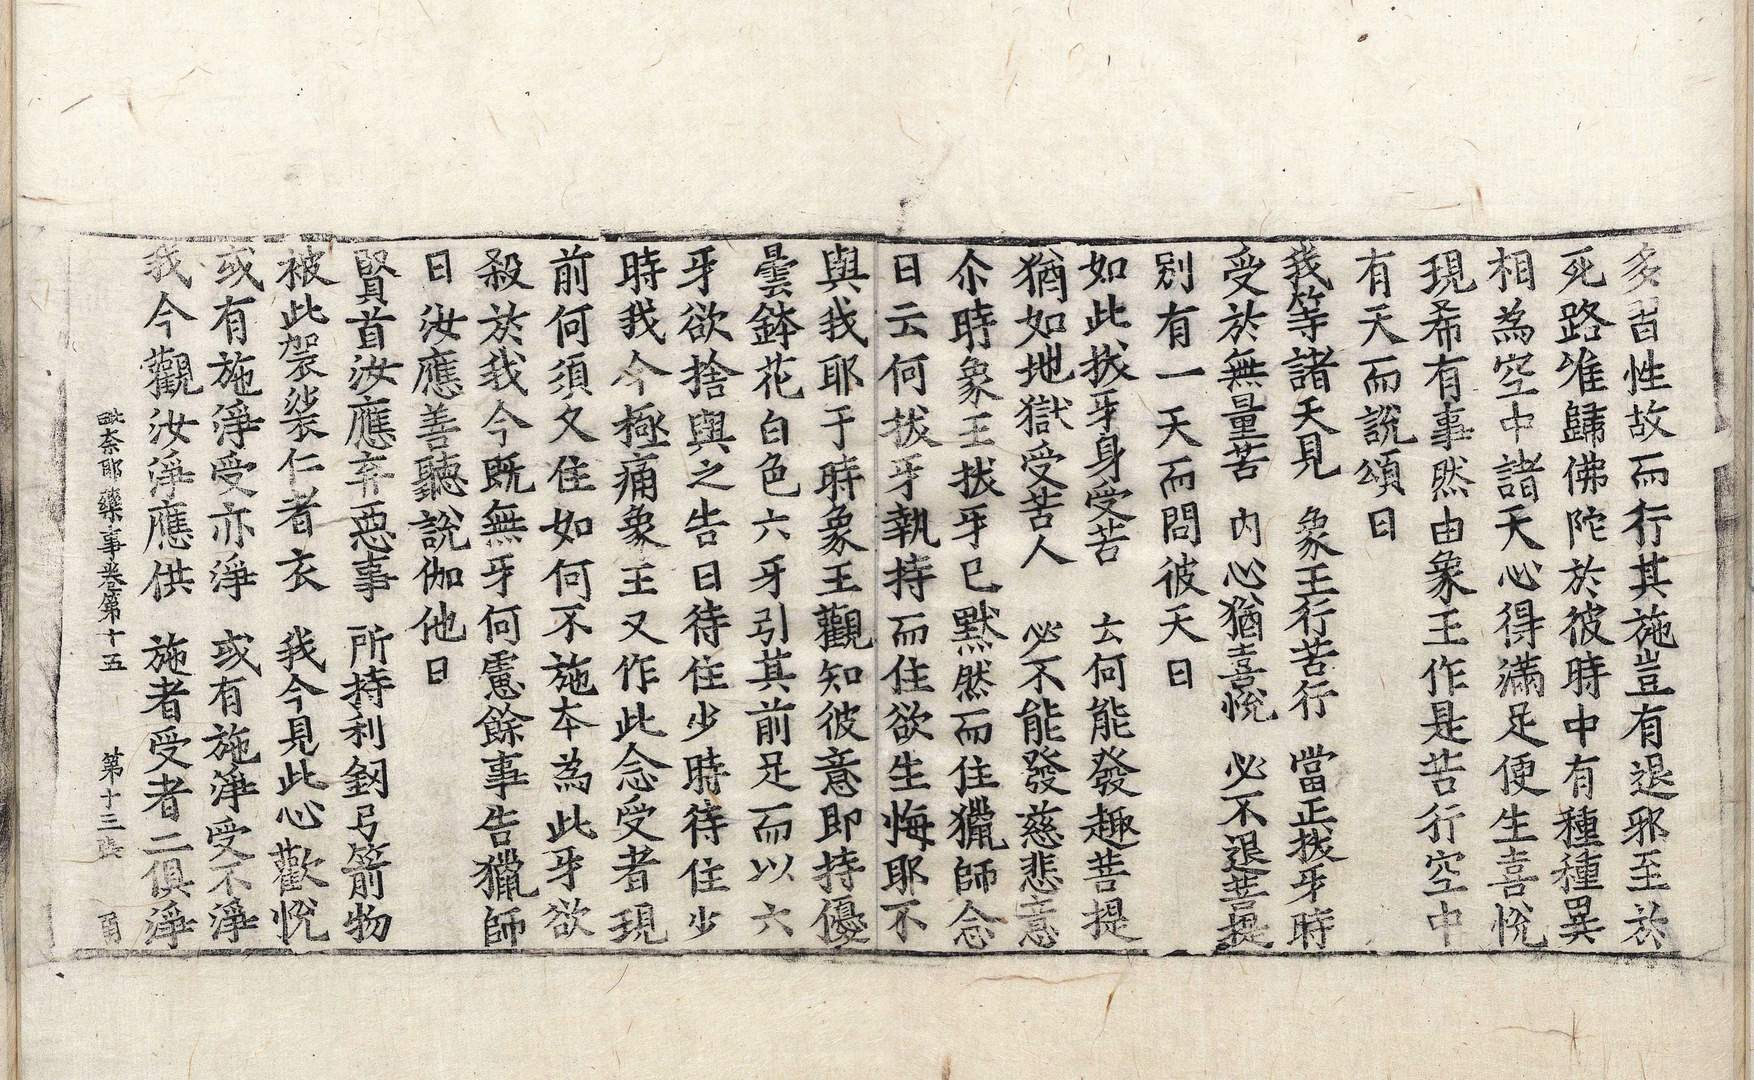 多習性故而行其施豈有退邪至於
死路唯歸佛陁於彼時中有種種異
相為空中諸天心得滿足便生喜悅
現希有事然由象王作是苦行空中
有天而說頌曰
我等諸天見　象王行苦行　當正拔牙時
受於無量苦　內心猶喜悅　必不退菩提
別有一天而問彼天曰
如此拔牙身受苦　云何能發趣菩提
猶如地獄受苦人　必不能發慈悲意
尒時象王拔牙已默然而住獵師念
曰云何拔牙執持而住欲生悔耶不
與我耶于時象王觀知彼意即持優
曇鉢花白色六牙引其前足而以六
牙欲捨與之告曰待住少時待住少
時我今極痛象王又作此念受者現
前何須久住如何不施本為此牙欲
殺於我今既無牙何慮餘事告獵師
曰汝應善聽說伽他曰
賢首汝應弃惡事　所持利釰弓箭物
被此袈裟仁者衣　我今見此心歡悅
或有施淨受亦淨　或有施淨受不淨
我今觀汝淨應供　施者受者二俱淨
毗奈耶藥事卷第十五　第十三張